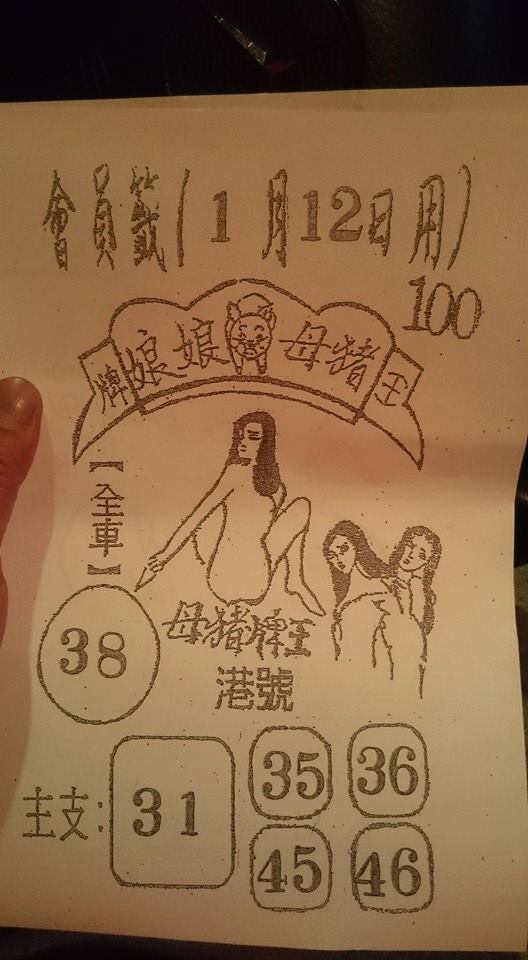 會員籤(1月12日用)
100
牌娘娘母猪王
【全車】
38
母猪牌王
港號
主支:31
35 36
45 46